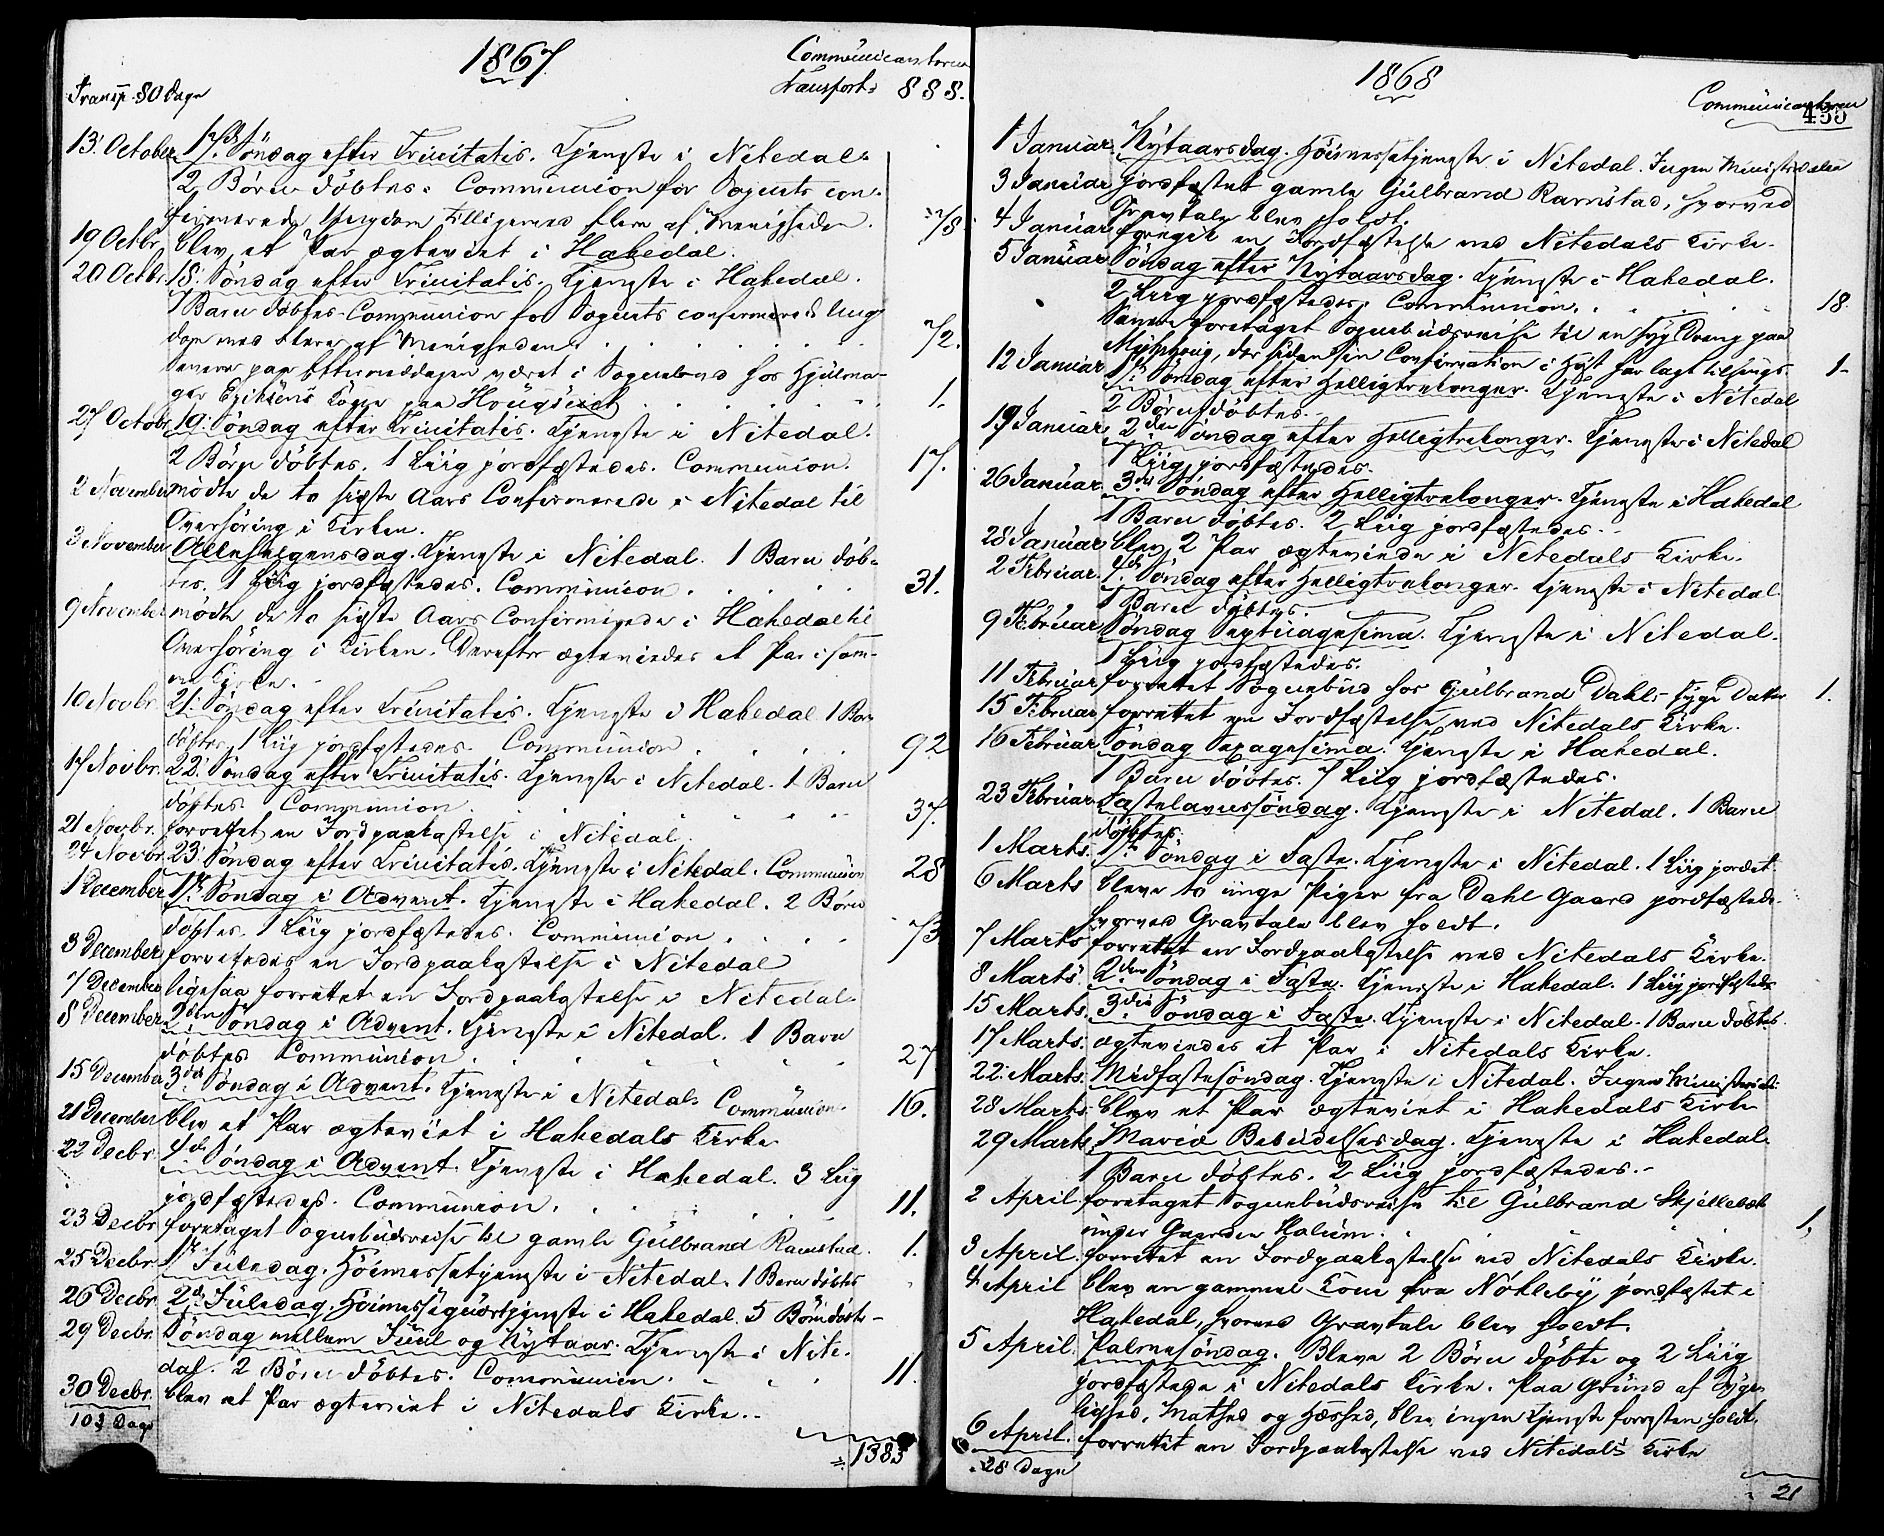 1867
Communicanterne
Transp. 80 Dage
Transport: 888.
13. October 17de Söndag efter Trinitatis. Tjeneste i Nitedal.
2 Börn döbtes. Communion for Sognets con-
firmerede Ungdom tilligemed flere af Menigheden. 78
19 Octbr. blev et Par ægteviet i Hakedal.
20 Octbr. 18. Söndag efter Trinitatis. Tjeneste i Hakedal.
1 Barn döbtes. Communion for Sognets confirmerede Ung-
dom med flere af Menigheden. 72.
Senere paa Eftermiddagen været i Sognebud hos Hjulma-
ger Eriksens Kone paa 1.
27 Octobr. 19. Söndag efter Trinitatis. Tjeneste i Nitedal.
2 Börn döbtes. 1 Liig jordfæstedes. Communion. 17.
2 November mödte de to sidste Aars Confirmerede i Nitedal til
Overhöring i Kirken.
3 November Allehelgensdag. Tjeneste i Nitedal. 1 Barn döb-
tes. 1 Liig jordfæstedes. Communion. 31.
9 November mödte de to sidste Aars Confirmerede i Hakedal til
Overhöring i Kirken. Derefter ægteviedes et Par i sam-
me Kirke.
10 Novbr. 21. Söndag efter Trinitatis. Tjeneste i Hakedal 1 Barn
döbtes. 1 Liig jordfæstedes. Communion 92
17 Novbr. 22. Söndag efter Trinitatis. Tjeneste i Nitedal. 1 Barn
döbtes. Communion. 37.
21 Novbr. forrettet en Jordpaakastelse i Nitedal.
24 Novbr. 23. Söndag efter Trinitatis. Tjeneste i Nitedal. Communion 28
1 December 1ste Söndag i Advent. Tjeneste i Hakedal. 2 Börn
döbtes. 1 Liig jordfæstedes. Communion. 73
3 December forrettedes en Jordpaakastelse i Nitedal
7 December ligesaa forrettet en Jordpaakastelse i Nitedal.
8 December 2den Söndag i Advent. Tjeneste i Nitedal. 1 Barn
döbtes Communion. 27
15 December 3die Söndag i Advent. Tjeneste i Nitedal. Communion. 16.
21 December blev et Par ægteviet i Hakedals Kirke
22 Decbr. 4de Söndag i Advent. Tjeneste i Hakedal. 3 Liig
jordfæstedes. Communion. 11.
23 Decbr. foretaget Sognebudsreise til gamle Gulbrand Ramstad. 1.
25 Decbr. 1ste Juledag. Höimessetjeneste i Nitedal. 1 Barn döbtes
26 Decbr. 2d Juledag. i Hakedal. 5 Börn döbte
29 Decbr. Söndag mellem Juul og Nytaar. Tjeneste i Nite-
dal. 2 Börn döbtes. Communion. 11.
30 Decbr. blev et Par ægteviet i Nitedals Kirke.
103 Dage
1383
1868
Communicanterne
455
1 Januar. Nytaarsdag. Höimessetjeneste i Nitedal. Ingen Ministerialia
3 Januar jordfæstet gamle Gulbrand Ramstad, hvorved
Gravtale blev holdt.
4 Januar foregik en Jordfæstelse ved Nitedals Kirke.
5 Januar Söndag efter Nytaarsdag. Tjeneste i Hakedal.
2 Liig jordfæstedes. Communion. 18.
Senere foretaget Sognebudsreise til en syg Dreng paa
, der siden sin Confirmation i Höst har lagt tilsengs 1
12 Januar 1ste Söndag efter Helligtrekonger. Tjeneste i Nitedal
2 Börn döbtes.
19 Januar 2den Söndag efter Helligtrekonger. Tjeneste i Nitedal
1 Liig jordfæstedes.
26 Januar. 3die Söndag efter Helligtrekonger. Tjeneste i Hakedal
1 Barn döbtes. 2 Liig jordfæstedes.
28 Januar blev 2 Par ægteviede i Nitedals Kirke.
2 Februar. 4de Söndag efter Helligtrekonger. Tjeneste i Nitedal.
1 Barn döbtes.
9 Februar Söndag Septuagesima. Tjeneste i Nitedal.
1 Liig jordfæstedes.
11 Februar forrettet Sognebud hos Gulbrand Dahls syge Datter 1.
15 Februar forrettet en Jordfæstelse ved Nitedals Kirke.
16 Februar Söndag Sexagesima. Tjeneste i Hakedal.
1 Barn döbtes. 7 Liig jordfæstedes.
23 Februar Fastelavnssöndag. Tjeneste i Nitedal. 1 Barn
döbtes.
1 Marts. 1ste Söndag i Faste. Tjeneste i Nitedal. 1 Liig jordet
6 Marts bleve to unge Piger fra Dahl Gaard jordfæstede
hvorved Gravtale blev holdt.
7 Marts forrettet en Jordpaakastelse ved Nitedals Kirke.
8 Marts. 2den Söndag i Faste. Tjeneste i Hakedal. 1 Liig jordfæstedes
15 Marts. 3die Söndag i Faste. Tjeneste i Nitedal. 1 Barn döbtes.
17 Marts. ægteviedes et Par i Nitedals Kirke.
22. Marts. Midfastesöndag. Tjeneste i Nitedal. Ingen Ministerial:
28 Marts. blev et Par ægteviet i Hakedals Kirke
29 Marts. Mariæ Bebudelsesdag. Tjeneste i Hakedal.
1 Barn döbtes. 2 Liig jordfæstedes.
2 April. foretaget Sognebudsreise til Gulbrand Skjellebæk
under Gaarden Holum. 1,
3 April. forrettet en Jordpaakastelse ved Nitedals Kirke.
4 April blev en gammel Kone fra Nökleby jordfæstet i
Hakedal, hvorved Gravtale blev holdt.
5 April. Palmesöndag. Bleve 2 Börn döbte og 2 Liig
jordfæstede i Nitedals Kirke. Paa Grund af Syge-
lighed, Mathed og Hæshed, blev ingen Tjeneste forresten holdt.
6 April. forrettet en Jordpaakastelse ved Nitedals Kirke
28 Dage
21